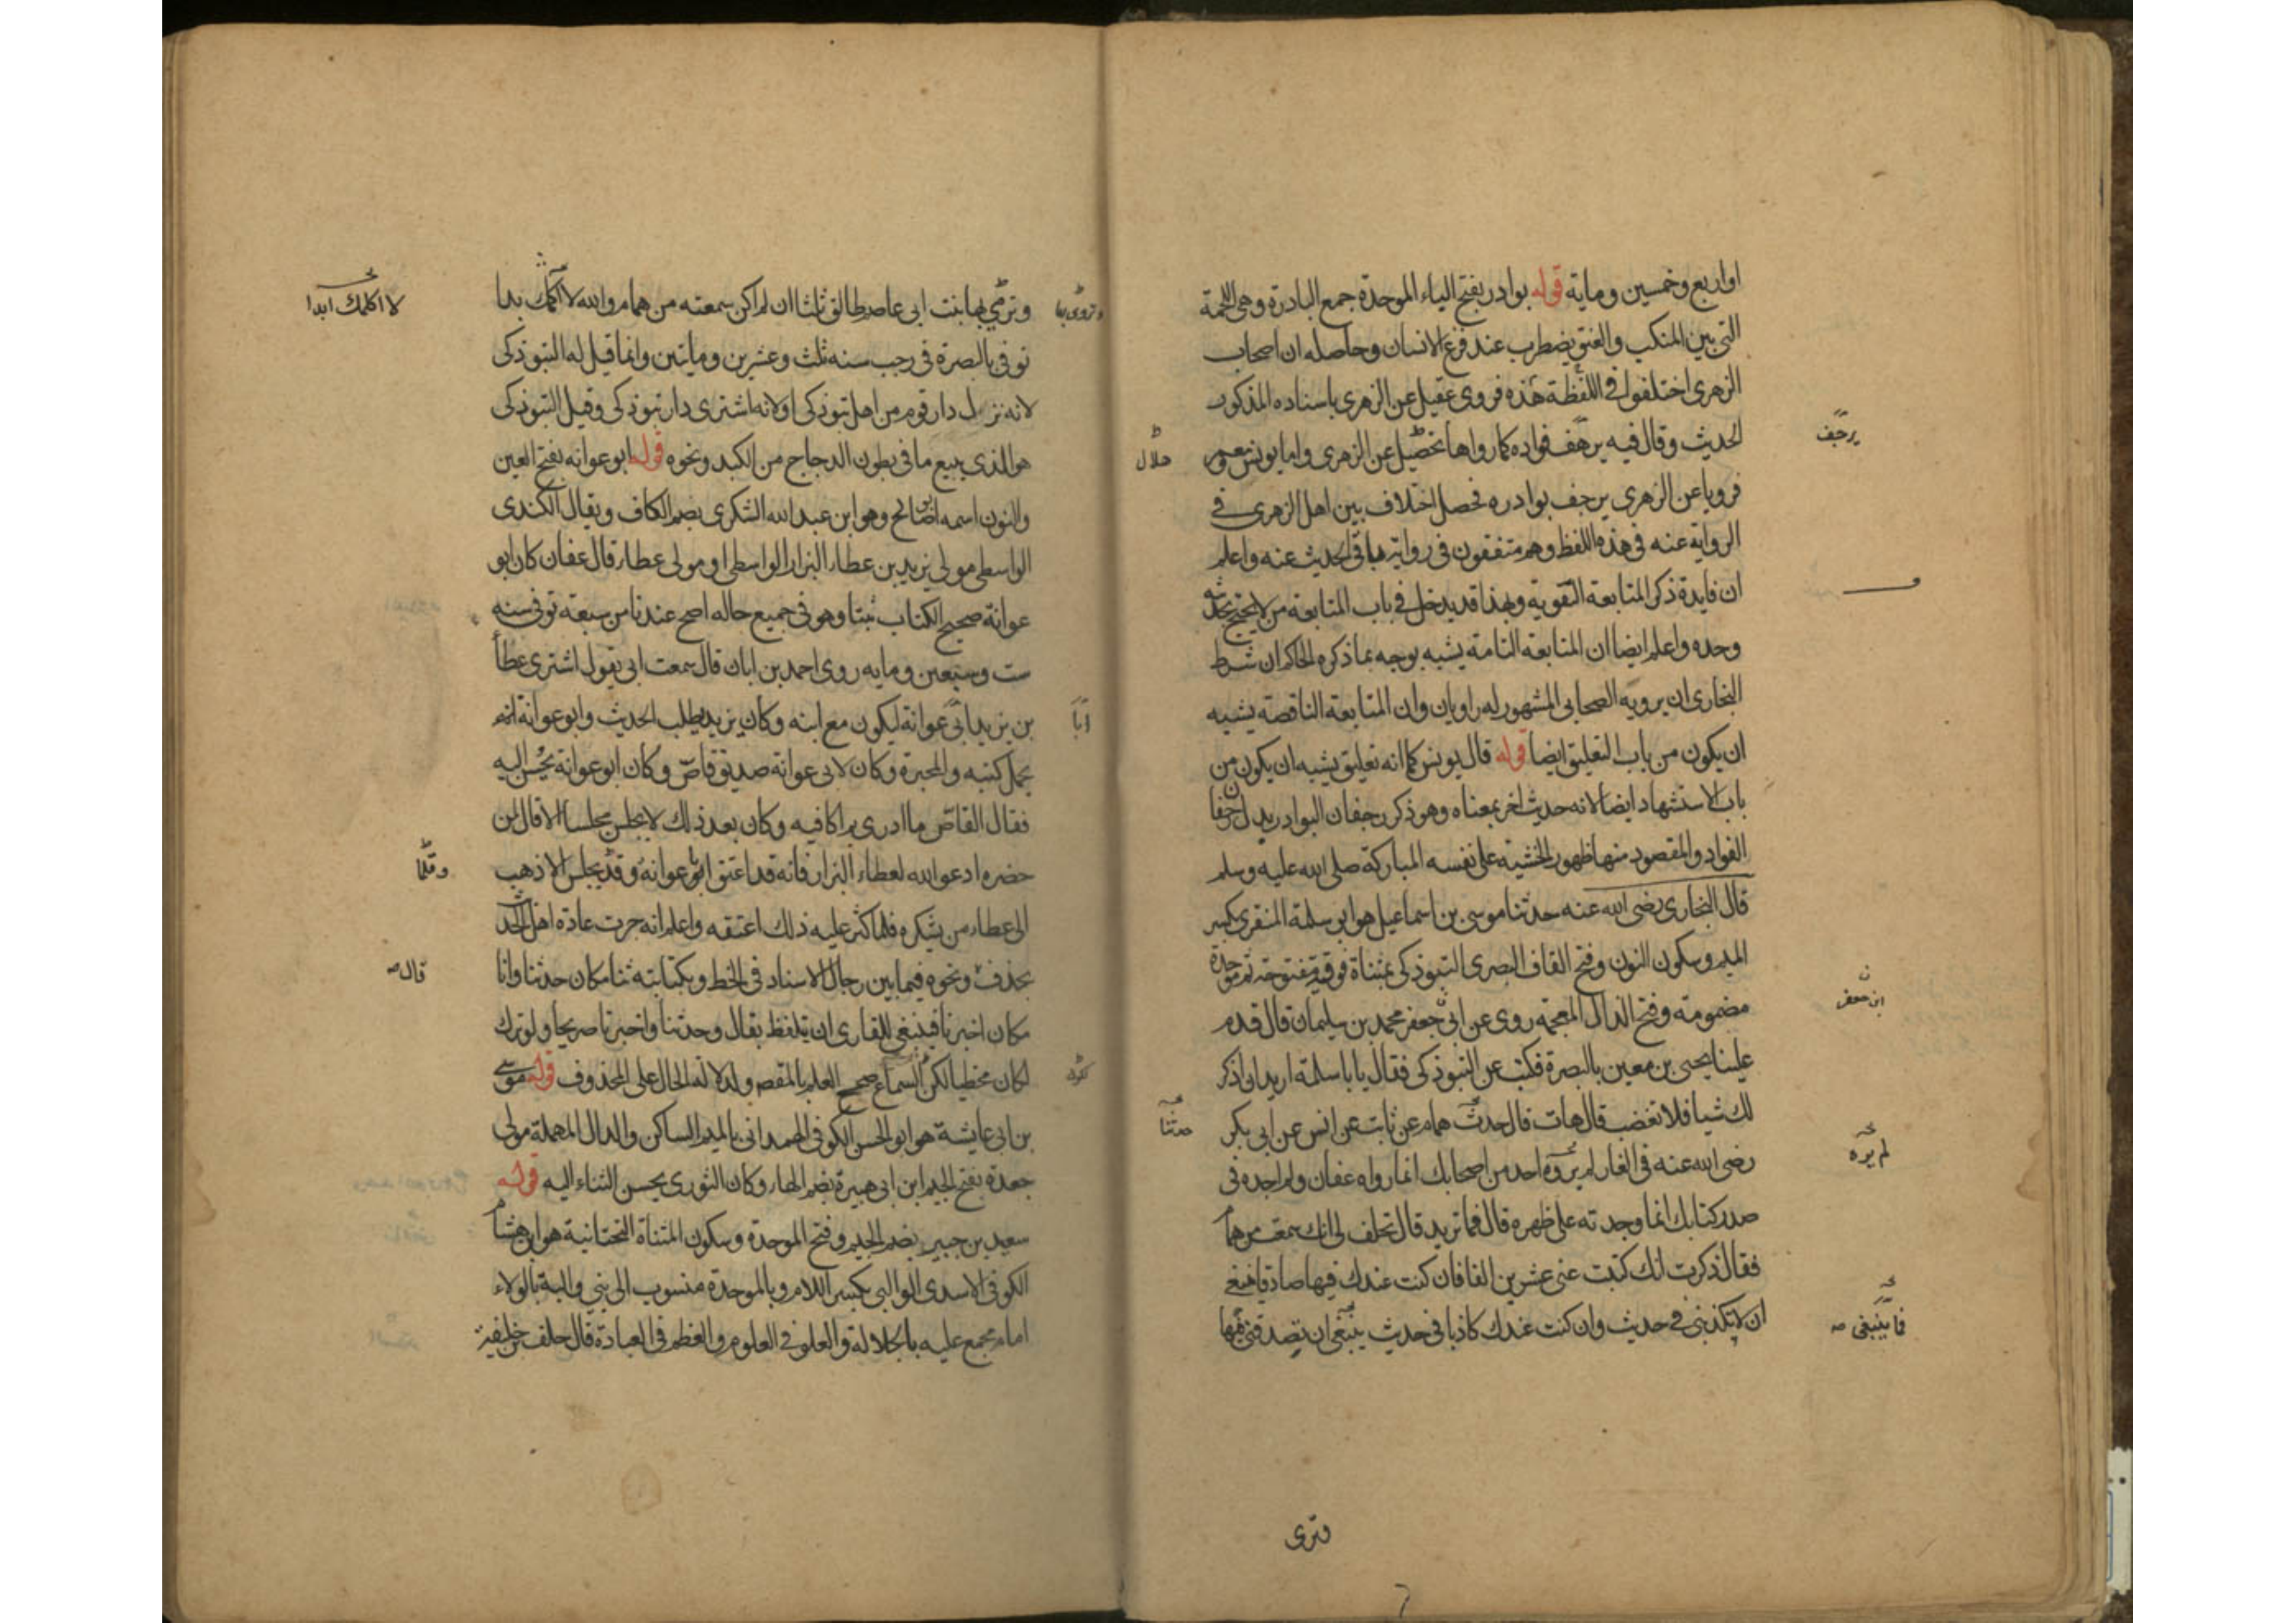 اواربع وخمسين وماية قوله بوادر بفتح الباء الموحدة جمع البادرة وهى اللحمة
التى بين المنكب والعنق يضطرب عند فزع الانسان وحاصله ان اصحاب
الزهرى اختلفوا فى اللفظة هذه فروى عقيل عن الزهرى باسناده المذكور
الحديث وقال فيه يرجف فواده كما رواها عن الزهرى واما يونس ومعمر
فرويا عن الزهرى يرجف بوادره فحصل اختلاف بين اهل الزهرى فى
الرواية عنه فى هذه اللفظ وهم متفقون فى رواية باقى الحديث عنه واعلم
ان فايدة ذكر المتابعة التقوية وبهذا قد يدخل فى باب المتابعة من لا يحتج بحديثه
وحده واعلم ايضا ان المتابعة التامة يشبه بوجه بما ذكره الحاكم ان شرط
البخارى ان يرويه الصحابى المشهور له راويان وان المتابعة الناقصة يشبه
ان يكون من باب التعليق ايضا قوله قال يونس كما انه تعليق يشبه ان يكون من
باب الاستشهاد ايضا لانه حديث اخر بمعناه وهو ذكر رجفان البوادر بدل رجفان
الفواد والمقصود منها ظهور الخشية على نفسه المباركة صلى الله عليه وسلم
قال البخارى رضى الله عنه حدثنا موسى بن اسماعيل هو ابو سلمة المنقرى بكسر
الميم وسكون النون وفتح القاف البصرى التبوذكى بمثناة فوقية مفتوحة ثم موحدة
مضمومة وفتح الذال المعجمة روى عن ابى جعفر محمد بن سليمان قال قدم
علينا يحيى بن معين بالبصرة فكتب عن التبوذكى فقال يا با سلمة اريد انى اذكر
لك شيا فلا تغضب قال هات قال حديث همام عن ثابت عن انس عن ابى بكر
رضى الله عنه فى الغار لم يروه احد من اصحابك انما رواه عفان ولم اجده فى
صدر كتابك انما وجدته على ظهره قال فما تريد قال تحلف لى انك سمعته من همام
فقال ذكرت انك كتبت عنى عشرين الفا فان كنت عندك فيها صادقا فينبغى
ان لا تكذبنى فى حديث وان كنت عندك كاذبا فى حديث ينبغى ان تصدقنى فيها
يرجف
ابن جعفر
حدثنا
لم يره
فما ينبغى صه
وترى
7
وترمى بها بنت ابى عاصم طالق ثلاثا ان لم اكن سمعته من همام والله لا اكلمك بدا
توفى بالبصرة فى رجب سنه ثلث وعشرين وماتين وانما قيل له التبوذكى
لانه نزل دار قوم من اهل تبوذكى اولانه اشترى دار تبوذكى وقيل التبوذكى
هو الذى يبيع ما فى بطون الدجاج من الكبد ونحوه قوله ابو عوانه بفتح العين
والنون اسمه الوضاح وهو ابن عبد الله اليشكرى بضم الكاف ويقال الكندى
الواسطى مولى يزيد بن عطاء البزار الواسطى او مولى عطاء قال عفان كان ابو
عوانة صحيح الكتاب ثبتا وهو فى جميع حاله اصح عندنا من سبعة توفى سنه
ست وسبعين ومايه روى احمد بن ابان قال سمعت ابى يقول اشترى عطاء
بن يزيد ابى عوانة ليكون مع ابنه وكان يزيد يطلب الحديث وابو عوانة انه
يحمل كتبه والمحبرة وكان لابى عوانة صديق قاص وكان ابو عوانة يحسن اليه
فقال القاص ما ادرى بم اكافيه وكان بعد ذلك لا يجلس مجلسا الا قال لمن
حضره ادعو الله لعطاء البزار فانه قد اعتق ابو عوانة وقد يجلس الا ذهب
الى عطاء من يشكره فلما كثر عليه ذلك اعتقه واعلم انه جرت عادة اهل الحد
بحذف ونحوه فيما بين رجال الاسناد فى الخط وبكتابته ثنا مكان حدثنا وانا
مكان اخبرنا فينبغى للقارى ان يتلفظ بقال وحدثنا واخبرنا صريحا ولو ترك
لكان مخطيا لكن السماع صحيح للعلم بالمقصو ولدلالة الحال على المحذوف قوله موسى
بن ابى عايشة هو ابو الحسن الكوفى الهمدانى بالميم الساكن والدال المهملة مولى
جعدة بفتح الجيم ابن ابى هبيرة بضم الهاء وكان الثورى يحسن الثناء اليه قوله
سعيد بن جبير بضم الجيم وفتح الموحدة وسكون المثناة التحتانية هو ابن هشام
الكوفى الاسدى الوالبى بكسر اللام وبالموحدة منسوب الى بنى والبة بالولاء
امام مجمع عليه بالجلالة والعلو فى العلوم والعظم فى العبادة قال خلف بن خليفة
وتروى بها
لا اكلمك ابدا
ابا
وقلما
قال صه